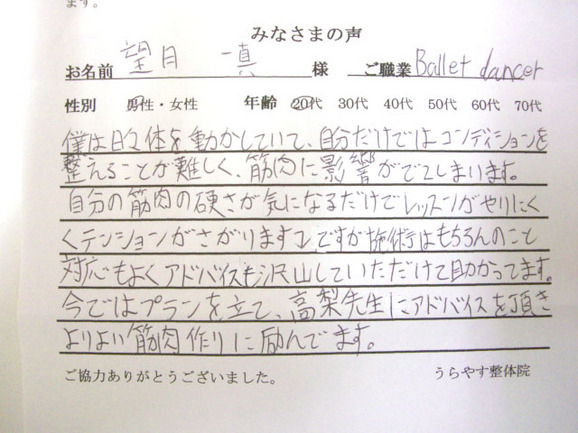 ます。
みなさまの声
お名前 望月 真 様 ご職業 Ballet dancer
性別 男性・女性 年齢 20代 30代 40代 50代 60代 70代
僕は日々体を動かしていて、自分だけではコンディションを
整えることが難しく、筋肉に影響がでてしまいます。
自分の筋肉の硬さが気になるだけでレッスンがやりにく
くテンションがさがります⤵ですが施術はもちろんのこと
対応もよくアドバイスも沢山していただけて助かってます。
今ではプランを立て、高梨先生にアドバイスを頂き
よりよい筋肉作りに励んでます。
ご協力ありがとうございました。 うらやす整体院